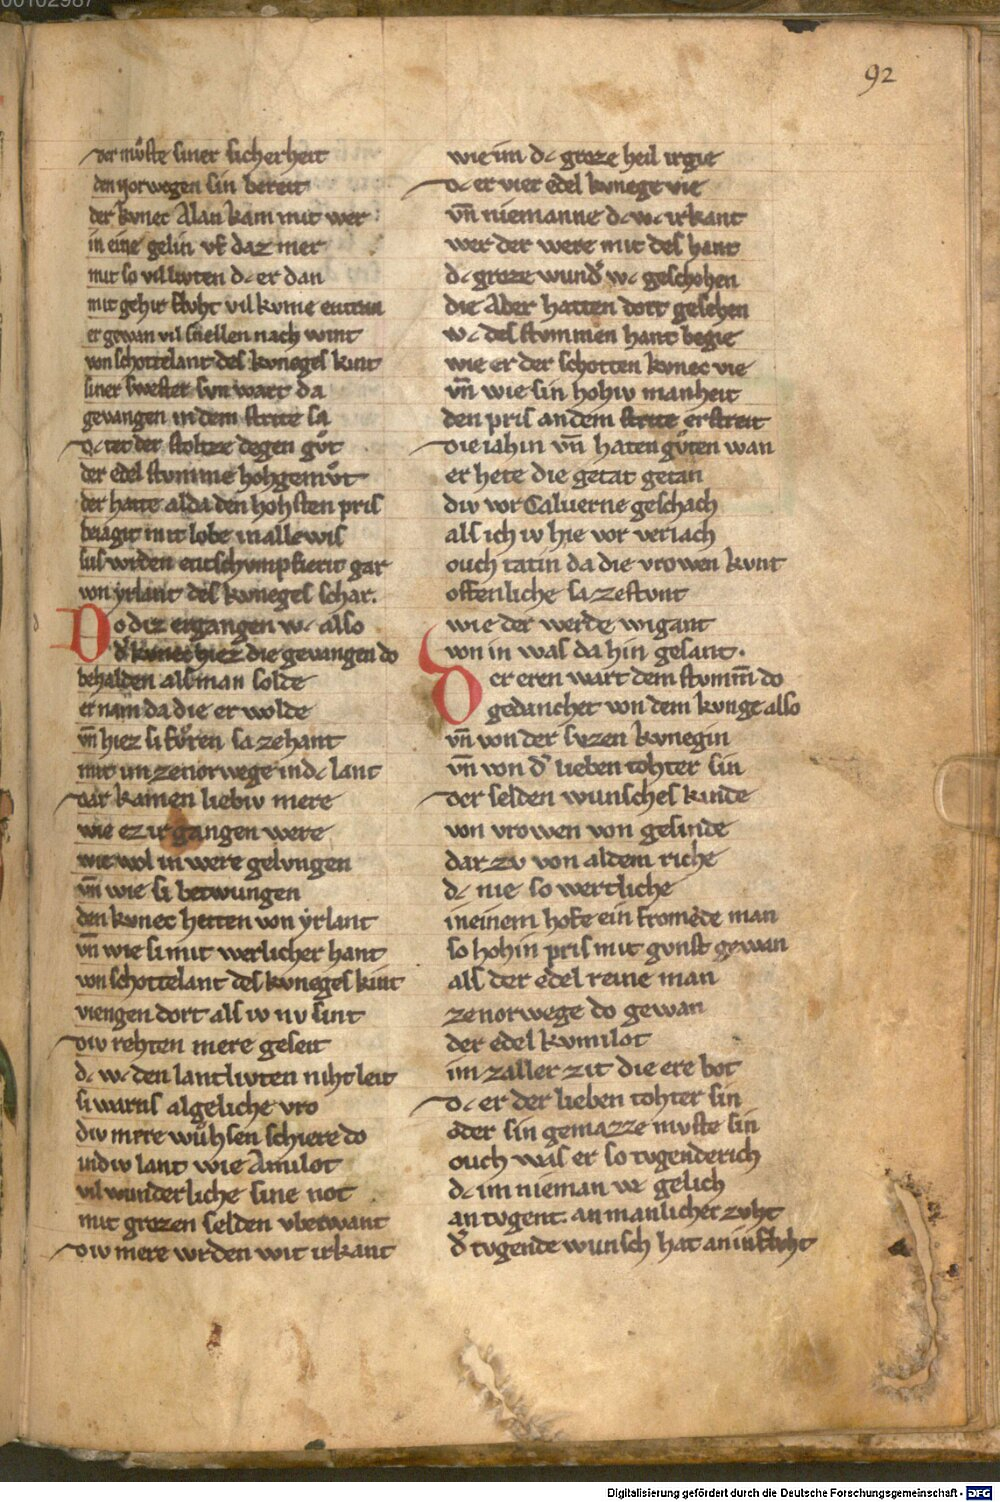 00102987
92
der mvͦste siner sicherheit
den norwegen sin bereit
der kvnec Alan kam mit wer
in eine gelin vf daz mer
mit so vil livten dc er dan
mit gehir flvht vil kvme entran
er gewan vil snellen nach wint
von schottelant des kvneges kint
siner swester svn wart da
gevangen in dem strite sa
dc tet der stoltze degen gvͦt
der edel stvmme hohgemvͦt
der hatte alda den hohsten pris
beiagit mit lobe in alle wis
sus wrden entschvmpfierit gar
von yrlant des kvneges schar.
Do diz ergangen wc also
d͛ kvnec hiez die gevangen do
behalden als man solde
er nam da die er wolde
vn̄ hiez si fvͦren sa zehant
mit im ze norwege in dc lant
dar kamen liebiv mere
wie ez irgangen were
wie wol in were gelvngen
vn̄ wie si betwungen
den kvnec hetten von yrlant
vn̄ wie si mit werlicher hant
von schottelant des kvneges kint
viengen dort als iv nv sint
div rehten mere geseit
dc wc den lantlivten niht leit
si warns algeliche vro
div mere wůhsen schiere do
in div lant wie Amilot
vil wunderliche sine not
mit grozen selden vbetwant
div mere wrden wit irkant
wie im dc groze heil irgie
dc er vier edel kvnege vie
vn̄ niemanne dc wc irkant
wer der were mit des hant
dc groze wund͛ wc geschehen
die Aber hatten dort gesehen
wc des stvmmen hant begie
wie er der schotten kvnec vie
vn̄ wie sin hohiv manheit
den pris an dem strite erstreit
die iahin vn̄ haten gůten wan
er hete die getat getan
div vor Caluerne geschach
als ich iv hie vor veriach
ouch tatin da die vrowen kvnt
offenliche sa zestvnt
wie der werde wigant
von in was da hin gesant.
Der eren wart dem stvmm̄ do
gedanchet von dem kvnge also
vn̄ von der svzen kvnegin
vn̄ von d͛ lieben tohter sin
der selden wunsches kinde
von vrowen von gesinde
dar zv von aldem riche
dc nie so wertliche
in einem hofe ein fromede man
so hohin pris mit gvnst gewan
als der edel reine man
ze norwege do gewan
der edel kvmilot
im zaller zit die ere bot
dc er der lieben tohter sin
oder sin gemazze mvste sin
ouch was er so tvgenderich
dc im nieman wc gelich
an tvgent. an manlicher zvht
d͛ tvgende wunsch hat an in flvht
Digitalisierung gefördert durch die Deutsche Forschungsgemeinschaft - DFG